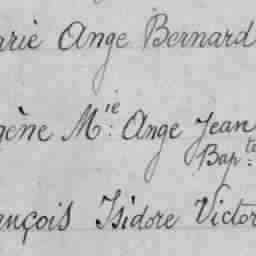 arie Ange Bernard
gène M.ie Ange Jean
Bap.te
ançois Isidore Victor